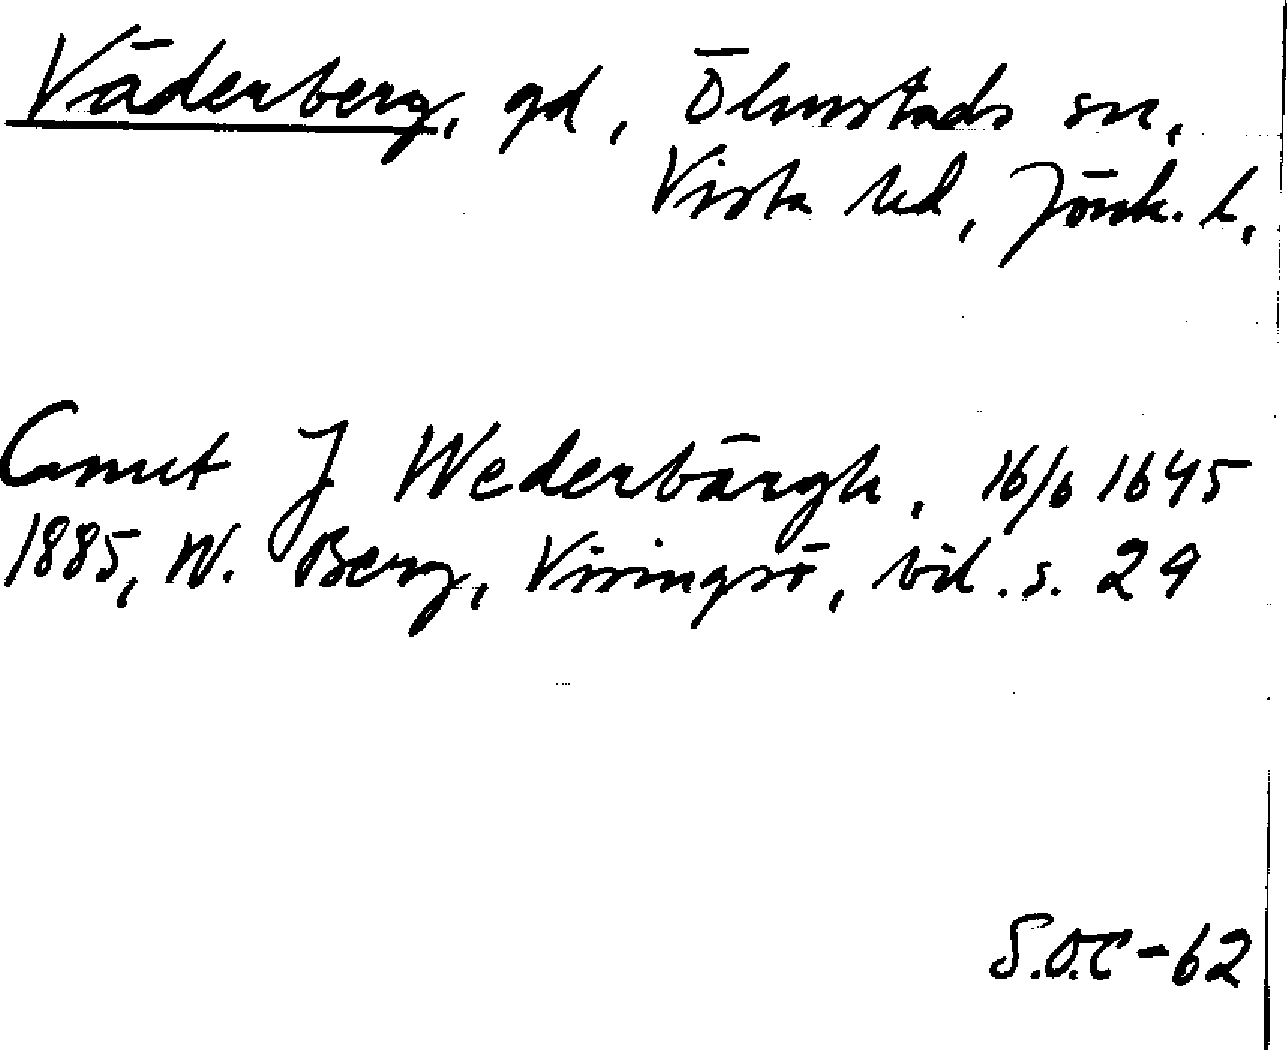 Väderberg, gd, Ölmstads sn,
Vista hd, Jönk. l.
Cnut J Wederbärgh, 16/6 1645
1885, W. Berg, Visingsö, bil. s. 29
S.O.C-62